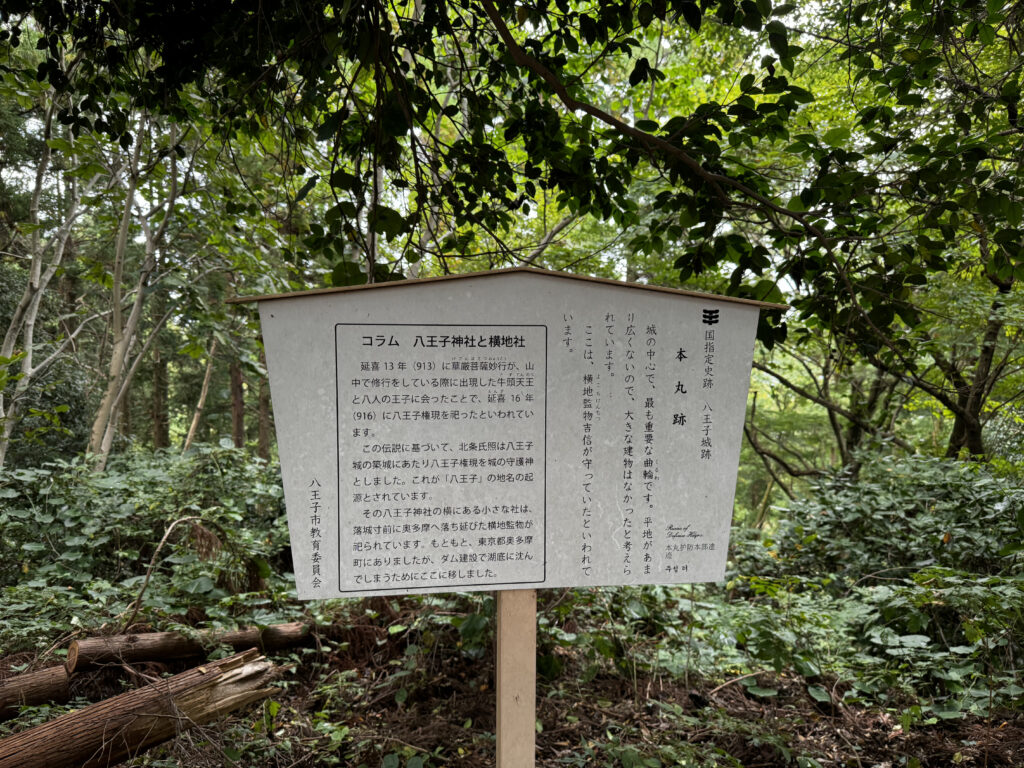 国指定史跡 八王子城跡
本丸跡
城の中心で、最も重要な曲輪です。平地があま
り広くないので、大きな建物はなかったと考えら
れています。
ここは、横地監物吉信が守っていたといわれて
います。
Ruins of
Defense Hdqrs.
本丸护防本部遗
迹
コラム 八王子神社と横地社
延喜13年（913）に華厳菩薩妙行が、山
中で修行をしている際に出現した牛頭天王
と八人の王子に会ったことで、延喜16年
（916）に八王子権現を祀ったといわれてい
ます。
この伝説に基づいて、北条氏照は八王子
城の築城にあたり八王子権現を城の守護神
としました。これが「八王子」の地名の起
源とされています。
その八王子神社の横にある小さな社は、
落城寸前に奥多摩へ落ち延びた横地監物が
祀られています。もともと、東京都奥多摩
町にありましたが、ダム建設で湖底に沈ん
でしまうためにここに移しました。
八王子市教育委員会